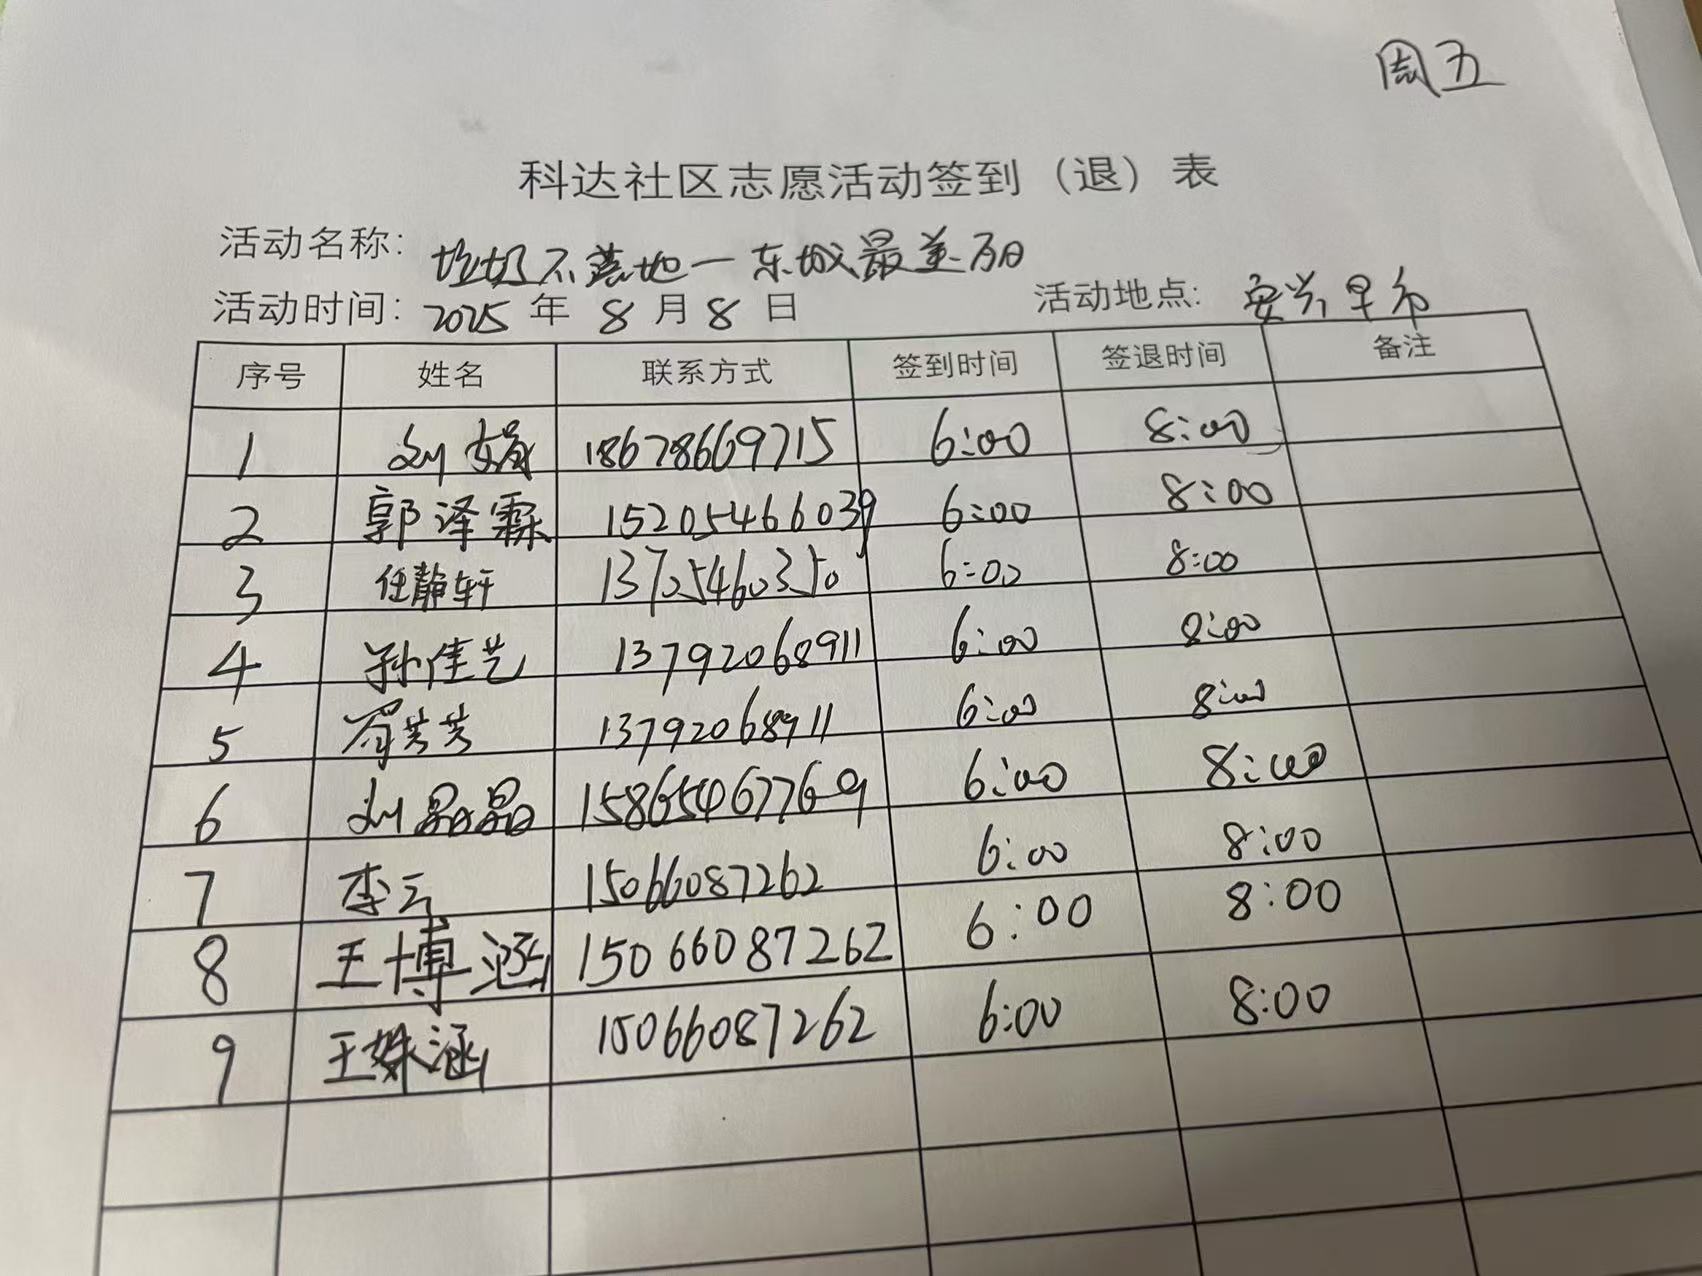 周五
科达社区志愿活动签到（退）表
活动名称: 垃圾不落地一东城最美丽
活动时间: 2025 年 8 月 8 日 活动地点: 安兴早市
序号 姓名 联系方式 签到时间 签退时间 备注
1 刘娟 18678669715 6:00 8:00
2 郭泽霖 15205466039 6:00 8:00
3 任静轩 13705460350 6:00 8:00
4 孙佳艺 13792068911 6:00 8:00
5 芳芳 13792068911 6:00 8:00
6 刘晶晶 15865467769 6:00 8:00
7 李云 15066087262 6:00 8:00
8 王博涵 15066087262 6:00 8:00
9 王姝涵 15066087262 6:00 8:00